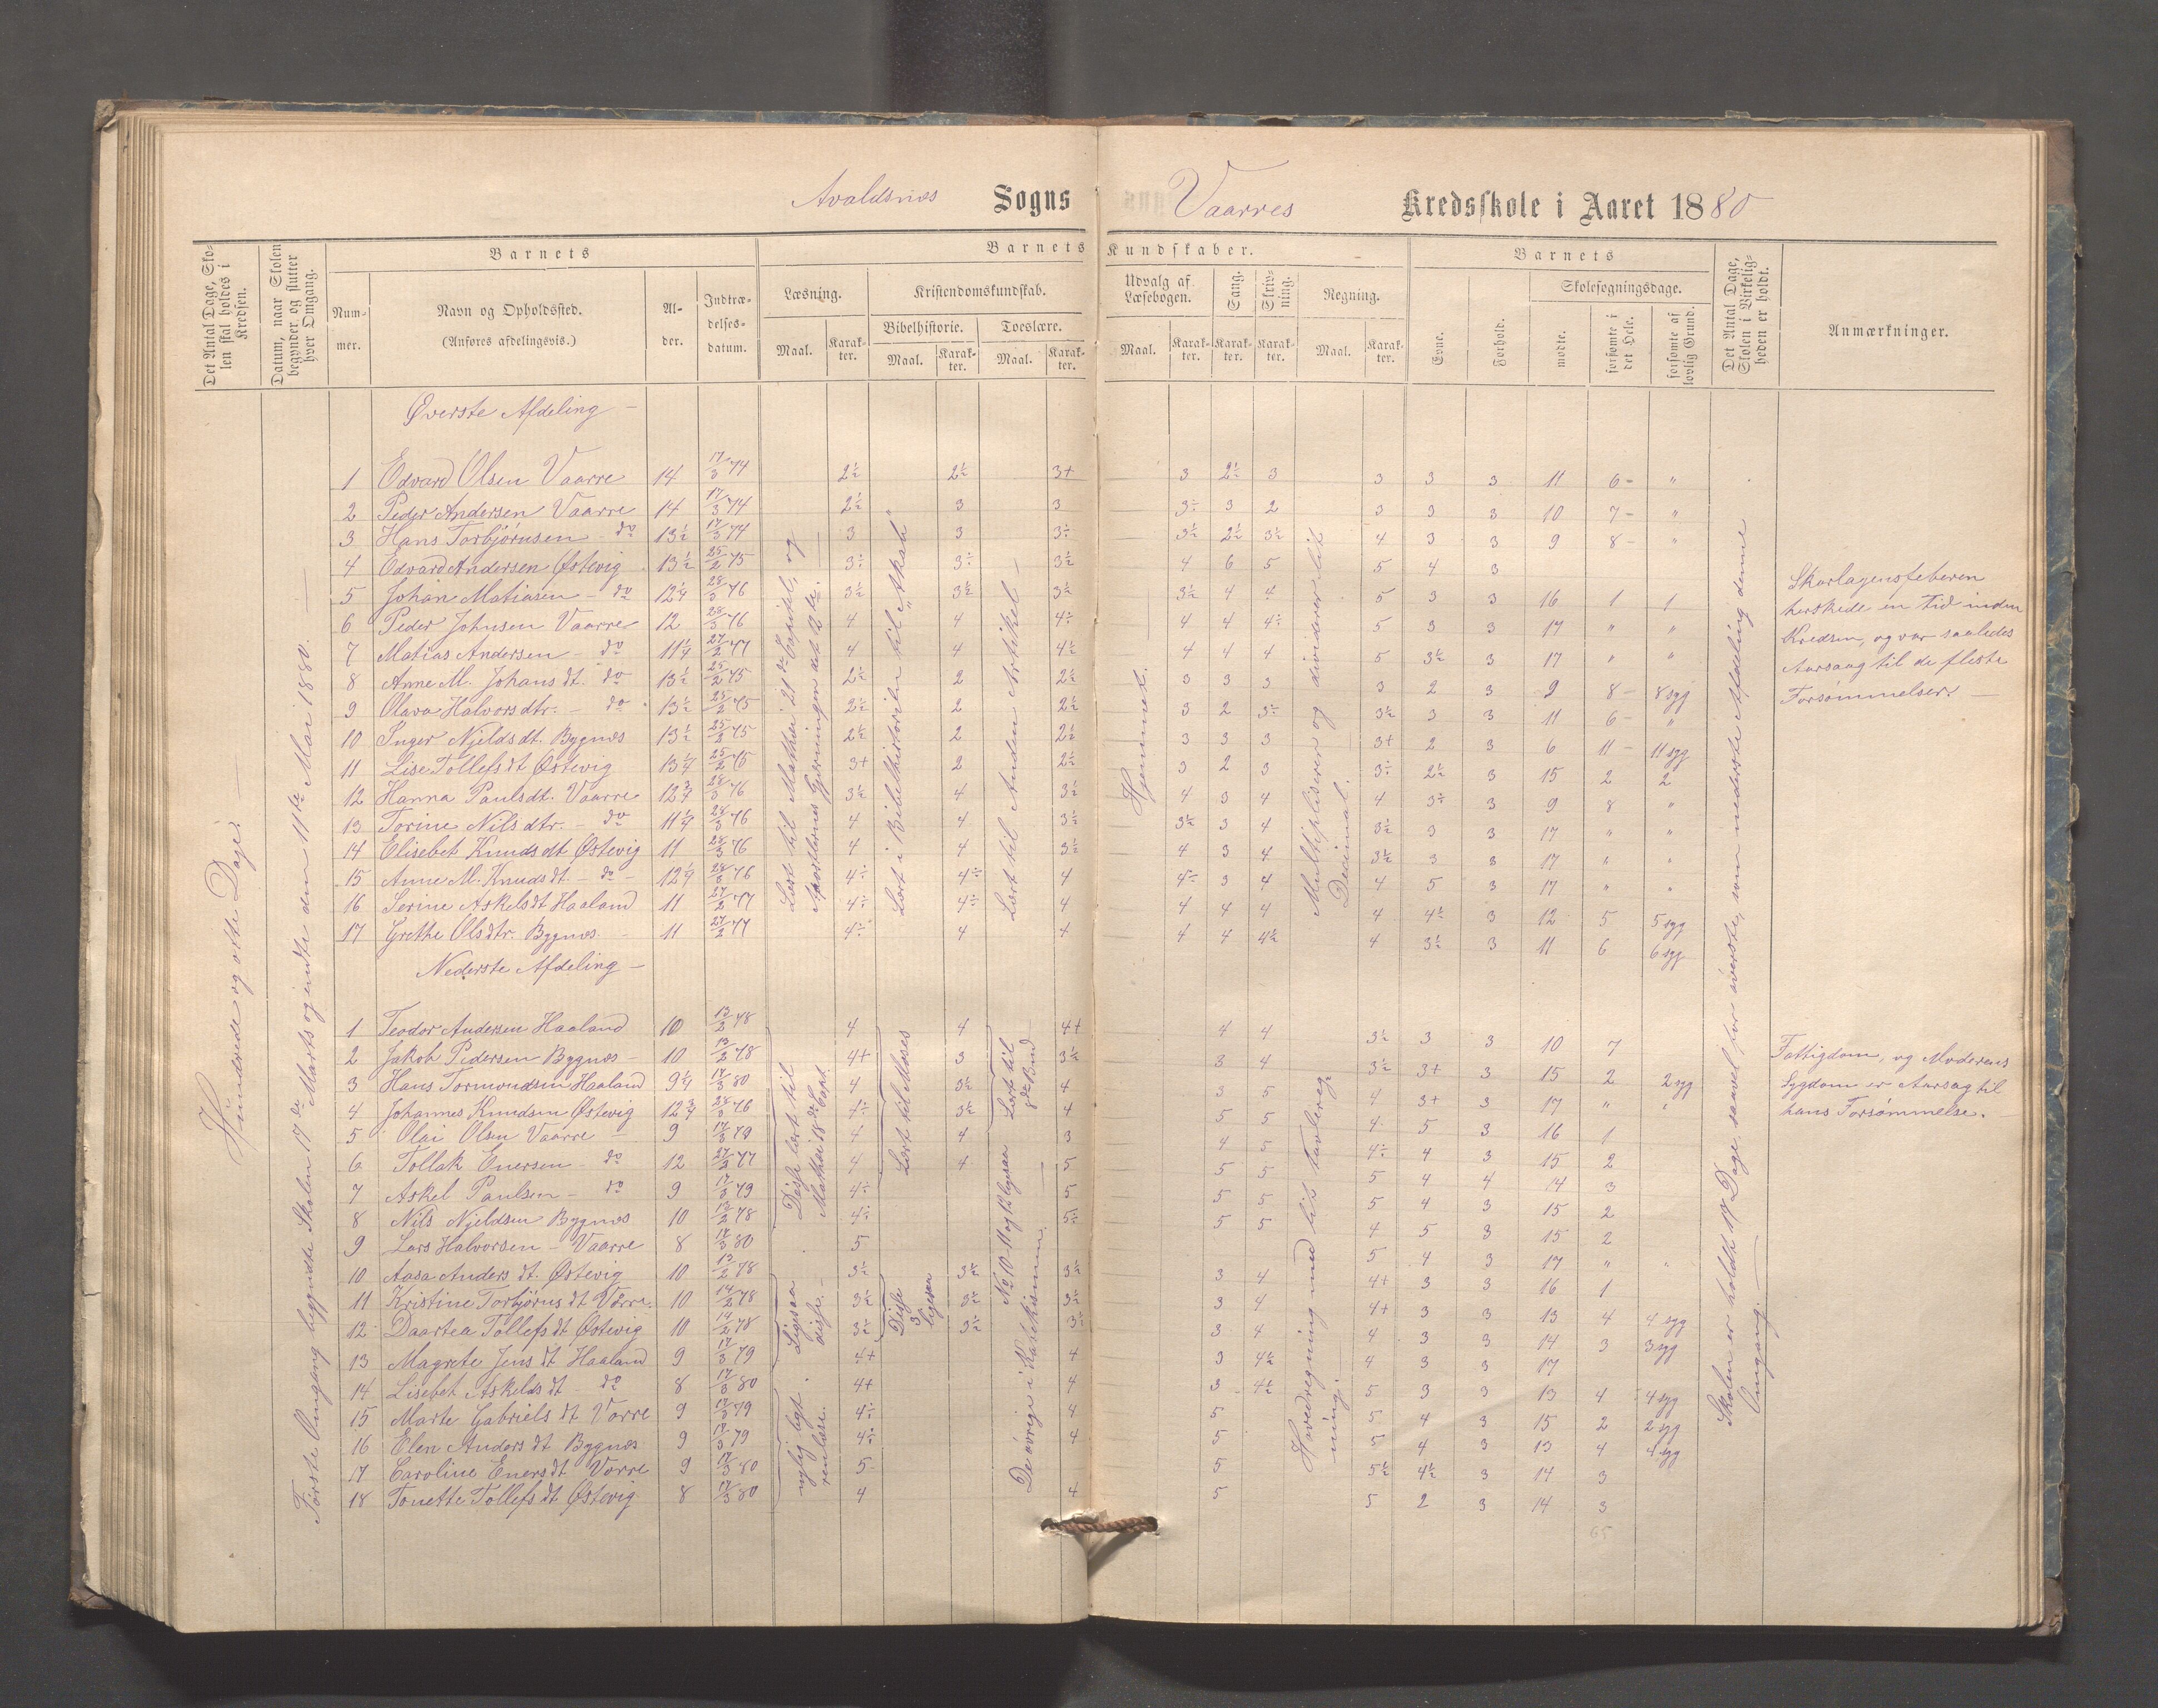 Avaldsnes Sogns Vaarres Kredsskole i Aaret 1880
Det Antal Dage, Skolen skal holdes i Kredsen.
Datum, naar Skolen begynder og slutter hver Omgang.
Barnets
Nummer.
Navn og Opholdssted.
(Anføres afdelingsvis.)
Alder.
Indtrædelsesdatum.
Barnets Kundskaber.
Læsning.
Maal.
Karakter.
Kristendomskundskab.
Bibelhistorie.
Maal.
Karakter.
Troeslære.
Maal.
Karakter.
Udvalg af Læsebogen.
Maal.
Karakter.
Sang.
Karakter.
Skrivning.
Karakter.
Regning.
Maal.
Karakter.
Barnets
Evne.
Forhold.
Skolesøgningsdage.
mødte.
forsømte i det Hele.
forsømte af lovlig Grund.
Det Antal Dage, Skolen i Virkeligheden er holdt.
Anmærkninger.
Hundrede og otte Dage.
Første Omgang begyndte Skolen 17de Marts og endte den 11te Mai 1880.
Øverste Afdeling
1 Edvard Olsen Vaarre 14 17/3 74 2½ 2½ 3+ 3 2½ 3 3 3 3 11 6 "
2 Peder Andersen Vaarre 14 17/3 74 2½ 3 3 3÷ 3 2 3 3 3 10 7 "
3 Hans Torbjørnsen do 13½ 17/3 74 3 3 3÷ 3½ 2½ 3½ 4 3 3 9 8 "
4 Edvard Andersen Østevig 13½ 25/2 75 3÷ 3÷ 3½ 4 6 5 5 4 3
5 Johan Matiasen do 12¼ 28/3 76 3½ 3½ 3½ 3½ 4 4 5 3 3 16 1 1
6 Peder Johnsen Vaarre 12 28/3 76 4 4 4÷ 4 4 4÷ 5 3 3 17 " "
7 Matias Andersen do 11¼ 27/2 77 4 4 4½ 4 4 4 5 3½ 3 17 " "
8 Anne M. Johansdt. do 13½ 25/2 75 2½ 2 2½ 3 3 3 3 2 3 9 8 8 syg
9 Olava Halvorsdtr. do 13½ 25/2 75 2½ 2 2½ 3 2 3÷ 3½ 3 3 11 6 "
10 Inger Njeldsdt. Bygnes 13½ 25/2 75 2½ 2 2½ 3 3 3 3+ 2 3 6 11 11 syg
11 Lise Tollefsdt Østevig 13¼ 25/2 75 3+ 2 2½ 3 2 3 3÷ 2½ 3 15 2 2
12 Hanna Paulsdt. Vaarre 12¾ 28/3 76 3½ 4 3½ 4 3 4 4 3÷ 3 9 8 "
13 Torine Nilsdtr. do 11¼ 28/3 76 4 4 3½ 3½ 3 4 3½ 3 3 17 " "
14 Elisebet Knudsdt Østevig 11 28/3 76 4 4 3½ 4 3 4 3½ 3 3 17 " "
15 Anne M. Knudsdt do 12¼ 28/3 76 4÷ 4÷ 4 4÷ 3 4 4 5 3 17 " "
16 Serine Askelsdt Haaland 11 27/2 77 4÷ 4÷ 4 4 4 4 4 4½ 3 12 5 5 syg
17 Grethe Olsdtr. Bygnes 11 27/2 77 4÷ 4 4 4 4 4½ 4 3½ 3 11 6 6 syg
Lært til Mathæi 21de Capitel, og
Apostlernes Gjerninger det 2de.
Lært i Bibelhistorien til "Akab"
Lært til Anden Artikel
Hjemmet.
Multipliserer og dividerer lidt
Decimal.
Skarlagensfeberen
herskede en Tid inden
Kredsen, og var saaledes
Aarsaag til de fleste
Forsømmelser.
Nederste Afdeling
1 Teodor Andersen Haaland 10 13/2 78 4 4 4+ 4 4 3½ 3 3 10 7
2 Jakob Pedersen Bygnes 10 13/2 78 4+ 3 3½ 3 4 3½ 3+ 3 15 2 2 syg
3 Hans Tormondsen Haaland 9¼ 17/3 80 4 3½ 4 3 5 4 3+ 3 17 " "
4 Johannes Knudsen Østevig 12¾ 28/3 76 4÷ 3½ 4 5 5 4 5 3 16 1
5 Olai Olsen Vaarre 9 17/3 79 4 4 3 4 5 4÷ 4 3 15 2
6 Tollak Enersen do 12 27/2 77 4 4 5 5 5 5 4 4 14 3
7 Askel Paulsen do 9 17/3 79 4÷ 5 5 5 5 4 3 15 2
8 Nils Njeldsen Bygnes 10 13/2 78 4÷ 5÷ 5 5 4 5 3 15 2
9 Lars Halvorsen Vaarre 8 17/3 80 5 5 4 3 17 " "
10 Aasa Andersdt. Østevig 10 13/2 78 3½ 3½ 3½ 3 4 4+ 3 3 16 1
11 Kristine Torbjørnsdt Vårre 10 14/2 78 3½ 3½ 3½ 3 4 4+ 3 3 13 4 4 syg
12 Daartea Tollefsdt Østevig 10 14/2 78 3÷ 3½ 3½ 3 4 4 3 3 14 3 3 syg
13 Magrete Jensdt Haaland 9 17/3 79 4+ 4 3 4½ 4 3 3 17
14 Lisebet Askeldsdt do 8 17/3 80 4+ 4 3 4½ 5 3 3 13 4 4 syg
15 Marte Gabrielsdt Vorre 9 17/3 79 4÷ 4 5 5 4 3 15 2 2 syg
16 Elen Andersdt Bygnes 9 17/3 79 4÷ 4 5 5 4 3 13 4 4 syg
17 Caroline Enersdt Vorre 9 17/3 80 5 5 5½ 4½ 3 14 3
18 Tonette Tollefsdt Østevig 8 17/3 80 4 4 5 5 2 3 14 3
65
Disse lært til
Mathæi 18de Capt.
Ligesaa
disse.
Lært til Moses
Disse
3
ligesaa
Lært til
8de Bud
No 10 11 og 12 ligesaa
De øvrige i Katekismen.
Hovedregning med lidt Tavleregning.
Skolen er holdt 17 Dage, saavel for øverste, som nederste Afdeling denne
Omgang.
Fattigdom, og Moderens
Sygdom er Aarsag til
hans Forsømmelse.